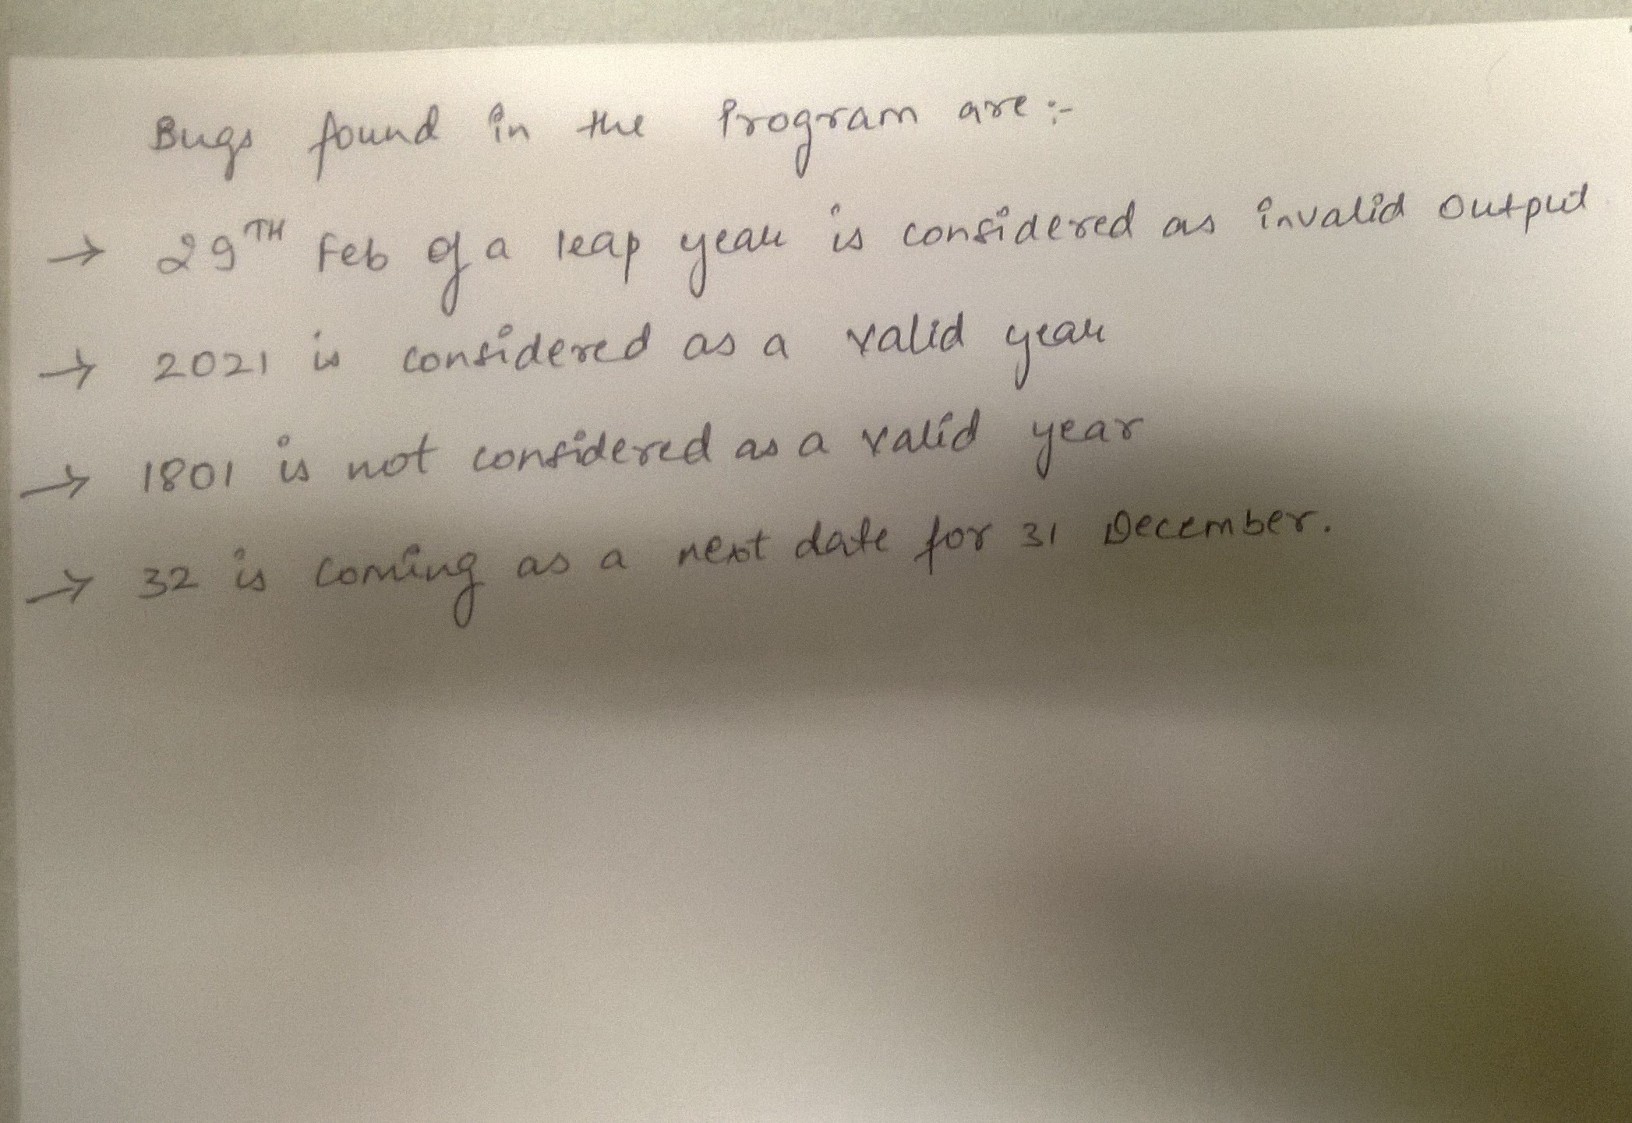 Bugs found in the Program are :-
→ 29TH Feb of a leap year is considered as invalid output
→ 2021 is considered as a valid year
→ 1801 is not considered as a valid year
→ 32 is coming as a next date for 31 December.